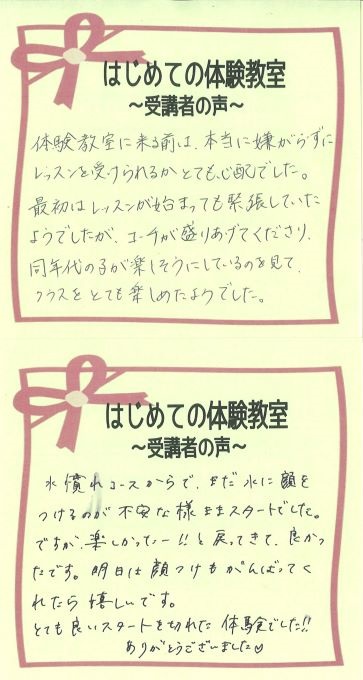 はじめての体験教室
～受講者の声～
体験教室に来る前は、本当に嫌がらずに
レッスンを受けられるかとても心配でした。
最初はレッスンが始まっても緊張していた
ようでしたが、コーチが盛りあげてくださり、
同年代の子が楽しそうにしているのを見て、
クラスをとても楽しめたようでした。
はじめての体験教室
～受講者の声～
水慣れコースからで、まだ水に顔を
つけるのが不安な様ままスタートでした。
ですが、楽しかったー!!と戻ってきて、良かっ
たです。明日は顔つけもがんばってく
れたら嬉しいです。
とても良いスタートを切れた体験でした!!
ありがとうございました♡